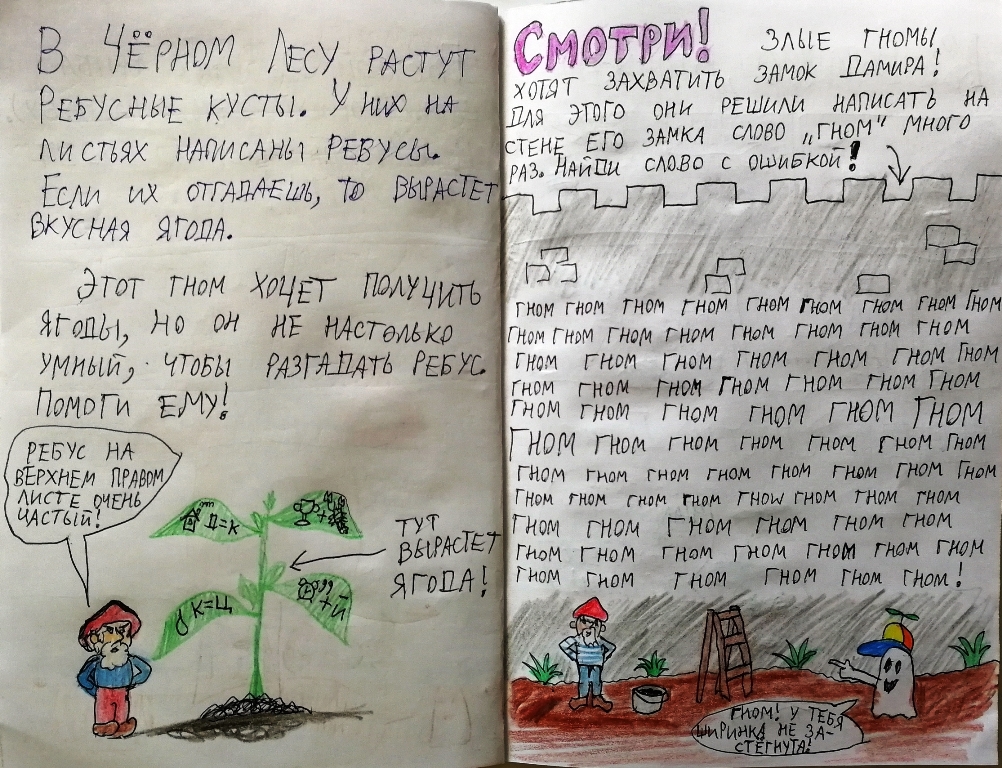 В ЧЁРНОМ ЛЕСУ РАСТУТ
РЕБУСНЫЕ КУСТЫ. У НИХ НА
ЛИСТЬЯХ НАПИСАНЫ РЕБУСЫ.
ЕСЛИ ИХ ОТГАДАЕШЬ, ТО ВЫРАСТЕТ
ВКУСНАЯ ЯГОДА.
ЭТОТ ГНОМ ХОЧЕТ ПОЛУЧИТЬ
ЯГОДЫ, НО ОН НЕ НАСТОЛЬКО
УМНЫЙ, ЧТОБЫ РАЗГАДАТЬ РЕБУС.
ПОМОГИ ЕМУ!
РЕБУС НА
ВЕРХНЕМ ПРАВОМ
ЛИСТЕ ОЧЕНЬ
ЧАСТЫЙ!
Д=К
К=Ц
+Й
ТУТ
ВЫРАСТЕТ
ЯГОДА!
СМОТРИ! ЗЛЫЕ ГНОМЫ
ХОТЯТ ЗАХВАТИТЬ ЗАМОК ДАМИРА!
ДЛЯ ЭТОГО ОНИ РЕШИЛИ НАПИСАТЬ НА
СТЕНЕ ЕГО ЗАМКА СЛОВО „ГНОМ" МНОГО
РАЗ. НАЙДИ СЛОВО С ОШИБКОЙ!
ГНОМ ГНОМ ГНОМ ГНОМ ГНОМ ГНОМ ГНОМ ГНОМ ГНОМ
ГНОМ ГНОМ ГНОМ ГНОМ ГНОМ ГНОМ ГНОМ ГНОМ
ГНОМ ГНОМ ГНОМ ГНОМ ГНОМ ГНОМ ГНОМ
ГНОМ ГНОМ ГНОМ ГНОМ ГНОМ ГНОМ ГНОМ
ГНОМ ГНОМ ГНОМ ГНОМ ГНОМ ГНОМ
ГНОМ ГНОМ ГНОМ ГНОМ ГНОМ ГНОМ ГНОМ
ГНОМ ГНОМ ГНОМ ГНОМ ГНОМ ГНОМ ГНОМ
ГНОМ ГНОМ ГНОМ ГНОМ ГНОW ГНОМ ГНОМ ГНОМ
ГНОМ ГНОМ ГНОМ ГНОМ ГНОМ ГНОМ
ГНОМ ГНОМ ГНОМ ГНОМ ГНОМ ГНОМ ГНОМ
ГНОМ ГНОМ ГНОМ ГНОМ ГНОМ ГНОМ!
ГНОМ! У ТЕБЯ
ШИРИНКА НЕ ЗА-
СТЁГНУТА!